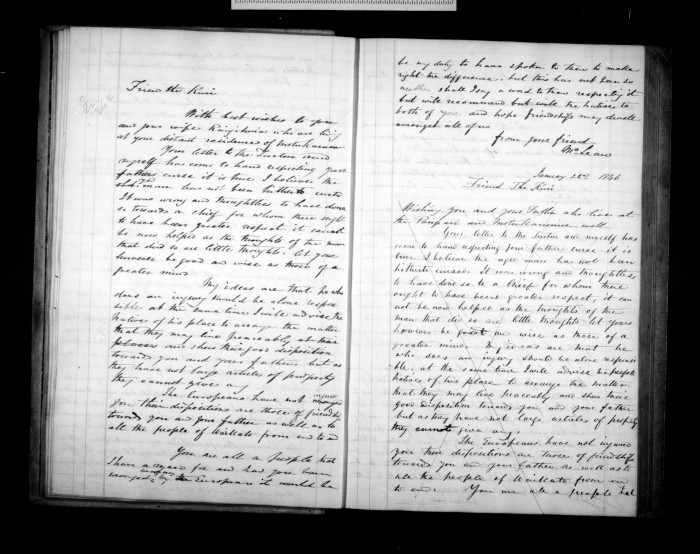 Friend the Kuri
With best wishes to you
and your wife who are living
at your distant residence of
Your letter to the Surton and
myself has come to hand respecting your
fathers curse it is true I believe the
old man has not been hitherto cursed
It was wrong and thoughtless to have done
so towards a chief for whom there ought
to have been greater respect it cannot
be now helped as the thoughts of the man
that did so are little thoughts. let your
however be good and wise as those of a
greater mind.
My ideas are that he who
does an injury should be alone respon
sible. at the same time I will advise the
Natives of his place to arrange the matter
that they may live peaceably at
and shew their good disposition
towards you and your father, but as
they have not large articles of property
they cannot give any
The Europeans have not injured
you. Their dispositions are those of friendship
towards you and your father as well as to
all the people of Waikato from end to end
You are all a people that
I have a regard for and had you been
wronged by Europeans it would be
be my duty to have spoken to them to make
right the difference, but this has not been so
neither shall I say a word to them respecting it
but will recommend the natives to
both of you and hope friendship may dwell
amongst all of us
from your friend
McLean
January 28th 1846
Friend The Kuri
Wishing you and your Father who lives at
the and well
Your letter to the Surton and myself has
come to hand respecting your fathers curse it is
true I believe the aged man has not been
hitherto cursed. It was wrong and thoughtless
to have done so to a Chief for whom there
ought to have been greater respect, it can
not be now helped as the thoughts of the
man that did so are little thoughts let yours
however be good and wise as those of a
greater mind. My ideas are that he
who does an injury should be alone responsi
ble. at the same time I will advise the people
natives of his place to arrange the matter
that they may live peaceably and shew their
good disposition towards you and your father
but as they have not large articles of property
they cannot give any
The Europeans have not injured
you their dispositions are those of friendship
towards you and your Father as well as to
all the people of Waikato from end
to end. You are all a people that